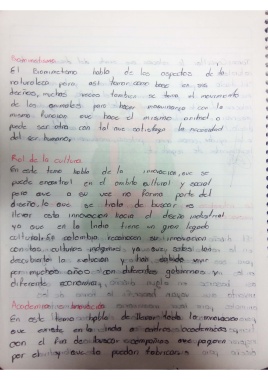 Biomimetismo
El Biomimetismo habla de los aspectos de la
naturaleza para así tomar como base los
diseños, muchas veces también se toma el movimiento
de los animales para hacer maquinaria con la
misma funcion que hace el mismo animal o
puede ser otra con tal que satisfaga la necesidad
del ser humano.
Rol de la cultura
En este tema habla de la innovación, que se
puede encontrar en el ambito cultural y social
pero que a su vez no forma parte del
diseño, lo que se trata de buscar es
llevar esta innovación hacia el diseño industrial
ya que en la India tiene un gran legado
cultural. En colombia
culturas indigenas ya que
descubierto la evolucion y han sabido vivir
por muchos años con diferentes gobiernos y
diferente economia,
Academia
En este tema habla de llevar toda la innovación
que existe en la India a centros academicos
con el fin de buscar compañias que paguen
por el y que lo puedan fabricar